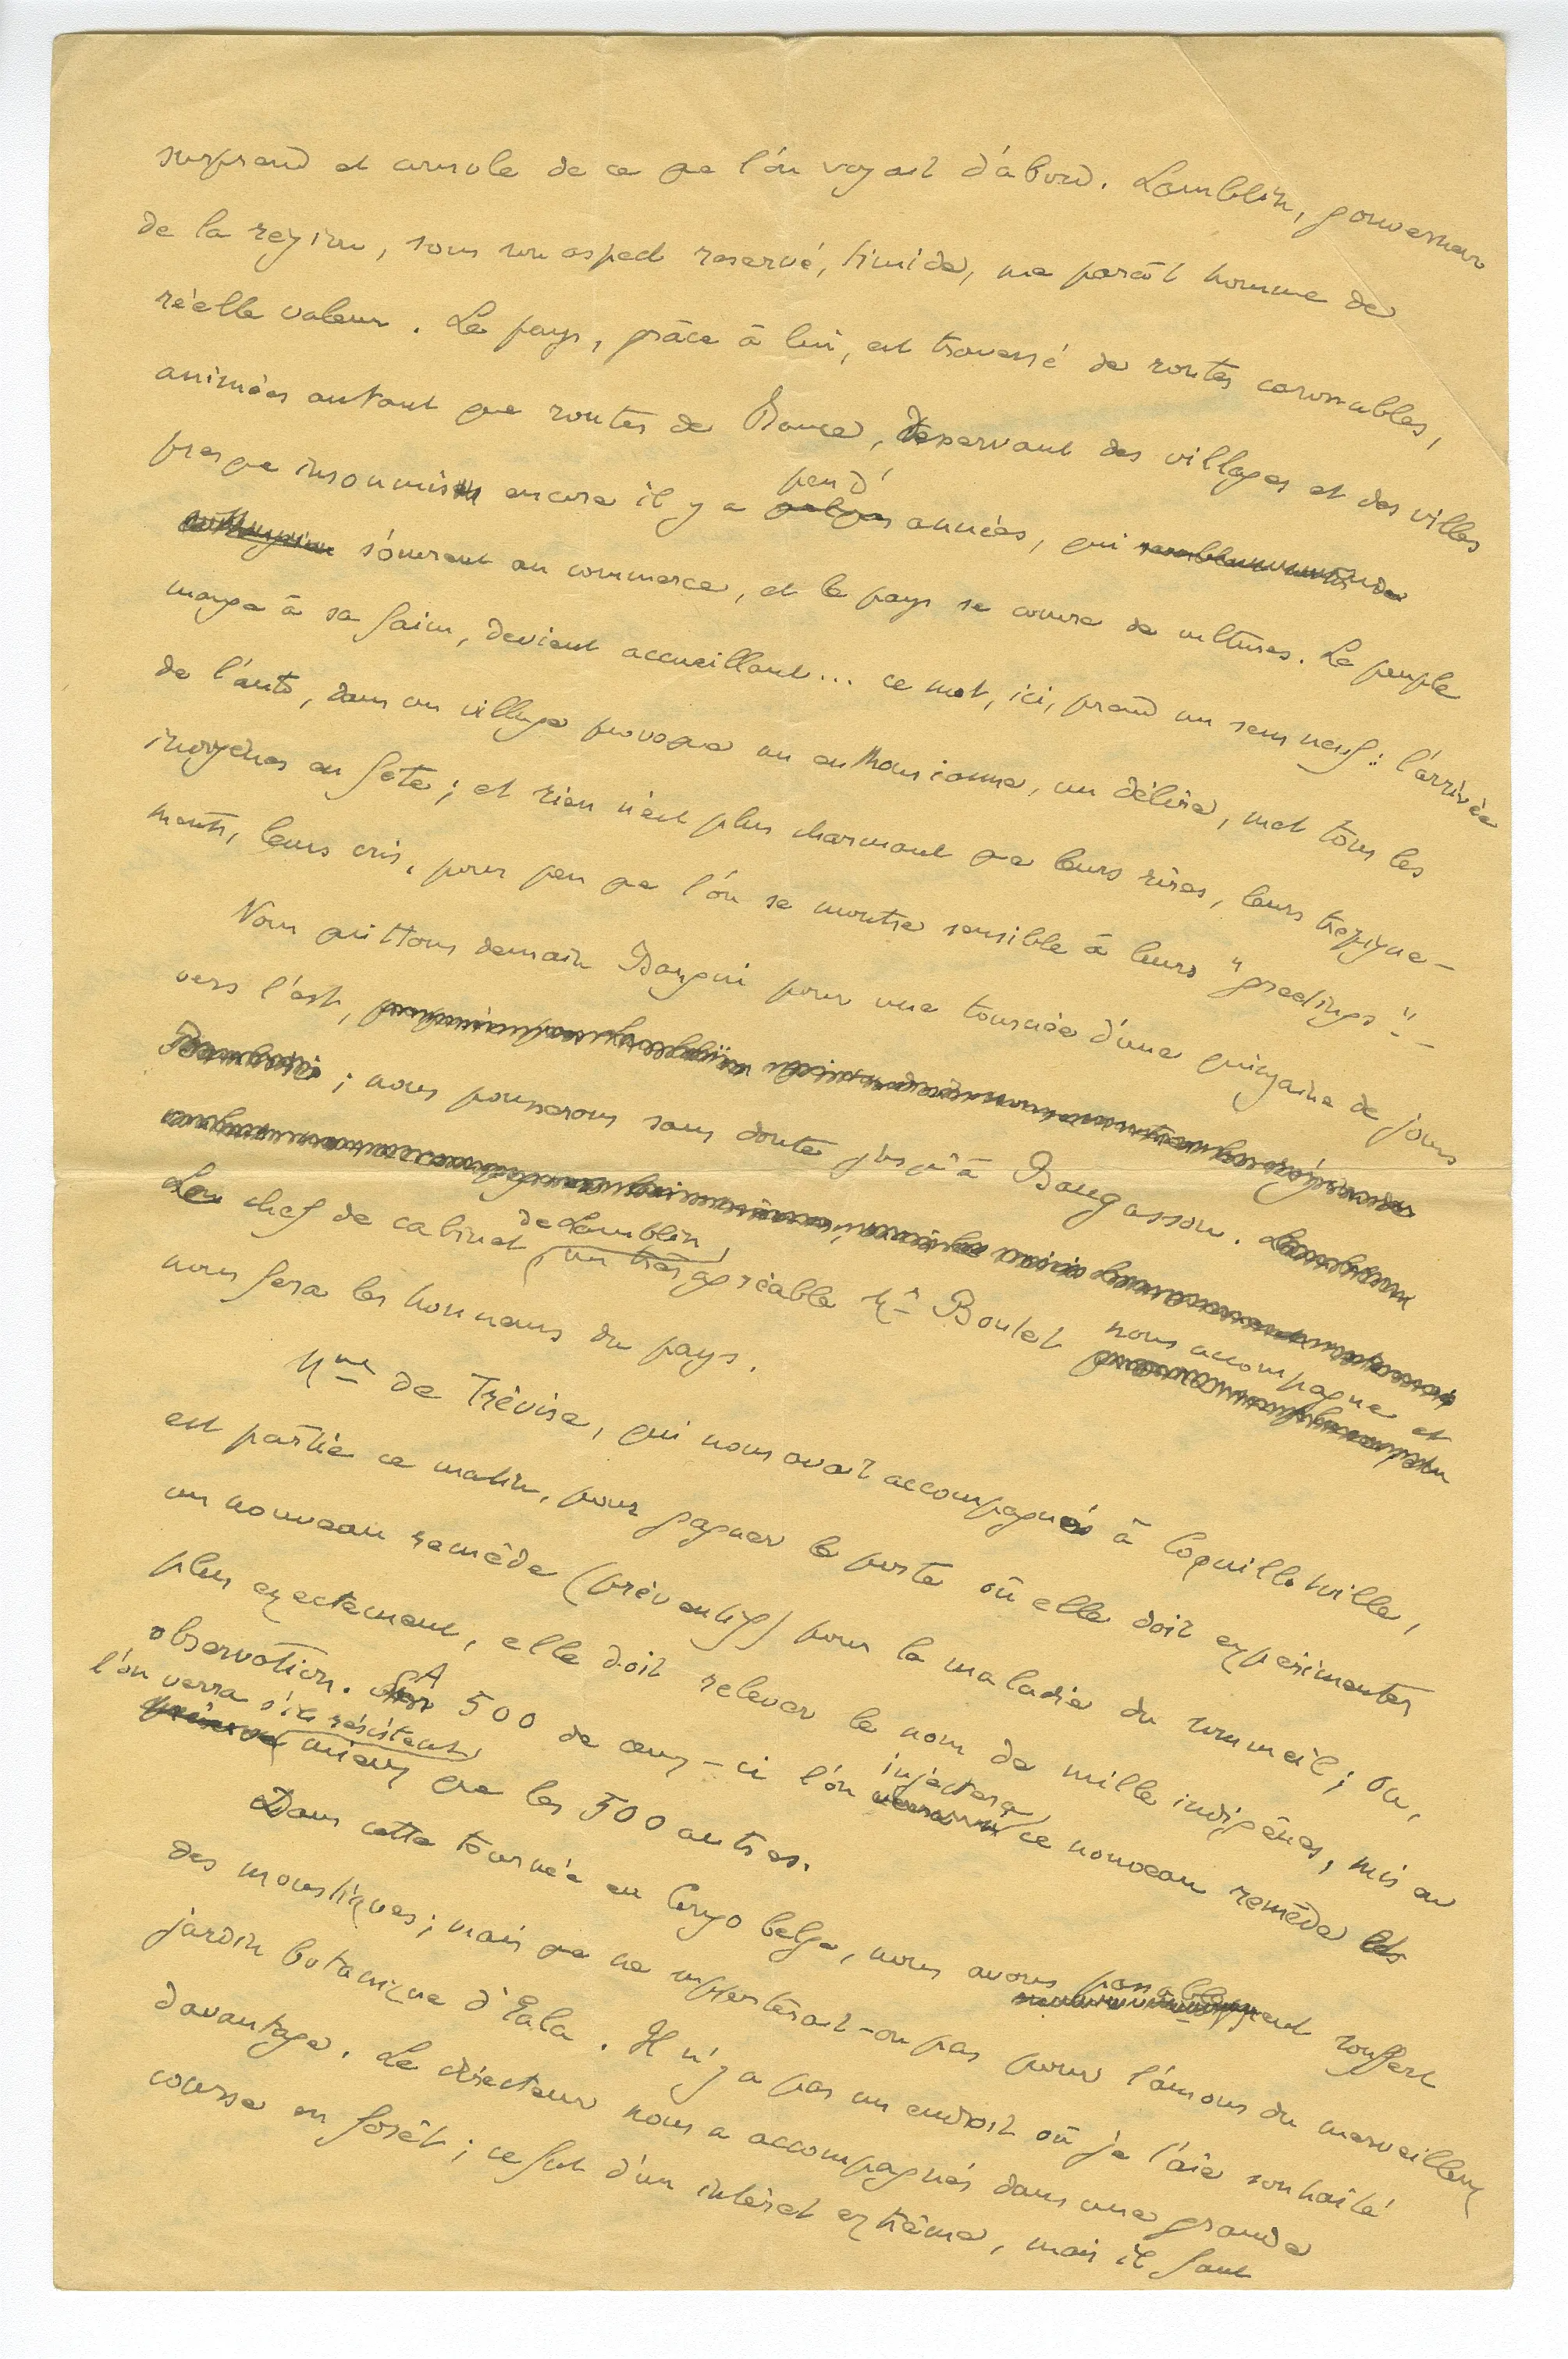 surprend et console de ce que l'on voyait d'abord. Lamblin, gouverneur
de la region, sous son aspect reservé, timide, me paraît homme de
réelle valeur. Le pays, grâce à lui, est traversé de routes carrossables,
animées autant que routes de France, desservant des villages et des villes
peu d'
presque insoumises encore il y a quelques années, qui
s'ouvrent au commerce, et le pays se couvre de cultures. Le peuple
mange à sa faim, devient accueillant... ce mot, ici, prend un sens neuf : l'arrivée
de l'auto, dans un village provoque un enthousiasme, un délire, met tous les
indigènes en fête ; et rien n'est plus charmant que leurs rires, leurs trepigne-
ments, leurs cris, pour peu que l'on se montre sensible à leurs "greetings" –
Nous quittons demain Bangui pour une tournée d'une quinzaine de jours
vers l'est,
Bambari ; nous pousserons sans doute jusqu'à Bangassou.
de Lamblin,
Le chef de cabinet un très agréable Mr Boulet
nous accompagne et
nous fera les honneurs du pays.
Mme de Trévise, qui nous avait accompagnés à Coquillatville,
est partie ce matin, pour gagner le poste où elle doit expérimenter
un nouveau remède (préventif) pour la maladie du sommeil ; ou,
plus exactement, elle doit relever le nom de mille indigènes, mis en
observation. A 500 de ceux-ci l'on injectera ce nouveau remède
l'on verra s'ils résistent
mieux que les 500 autres.
Dans cette tournée au Congo belge, nous avons passablement souffert
des moustiques ; mais que ne supporterait-on pas pour l'amour du merveilleux
jardin botanique d'Eala. Il n'y a pas un endroit où je l'aie souhaité
davantage. Le directeur nous a accompagnés dans une grande
course en forêt ; ce fut d'un intérêt extrême, mais il faut